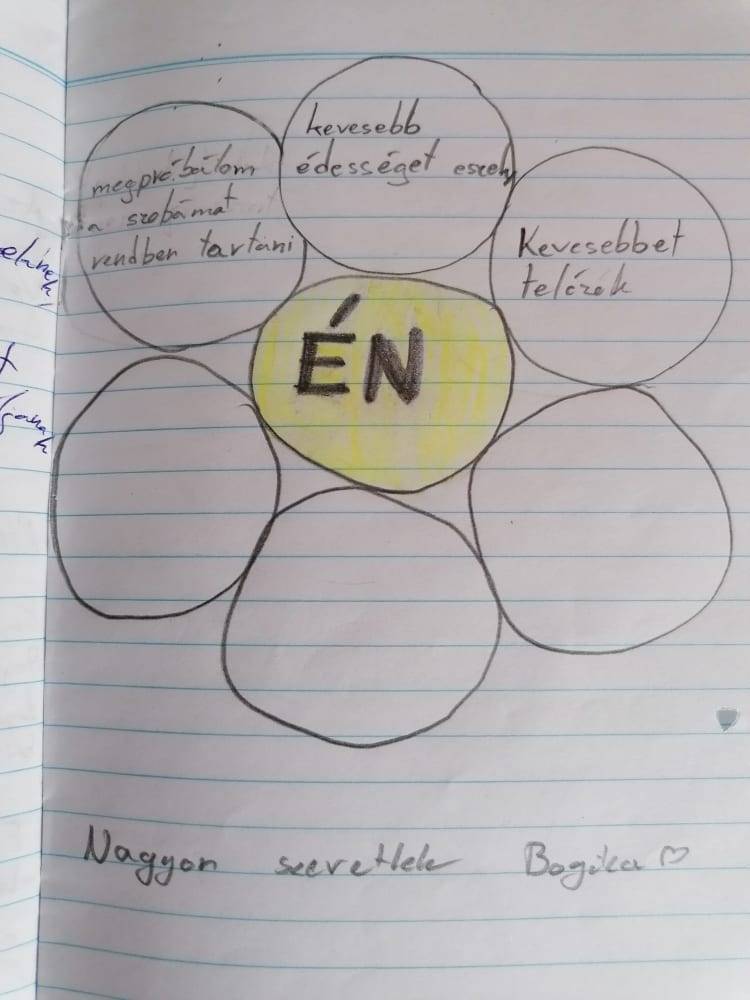 megpróbálom
a szobámat
rendben tartani
kevesebb
édességet eszek
Kevesebbet
telózok
ÉN
Nagyon szeretlek Bogika ♡